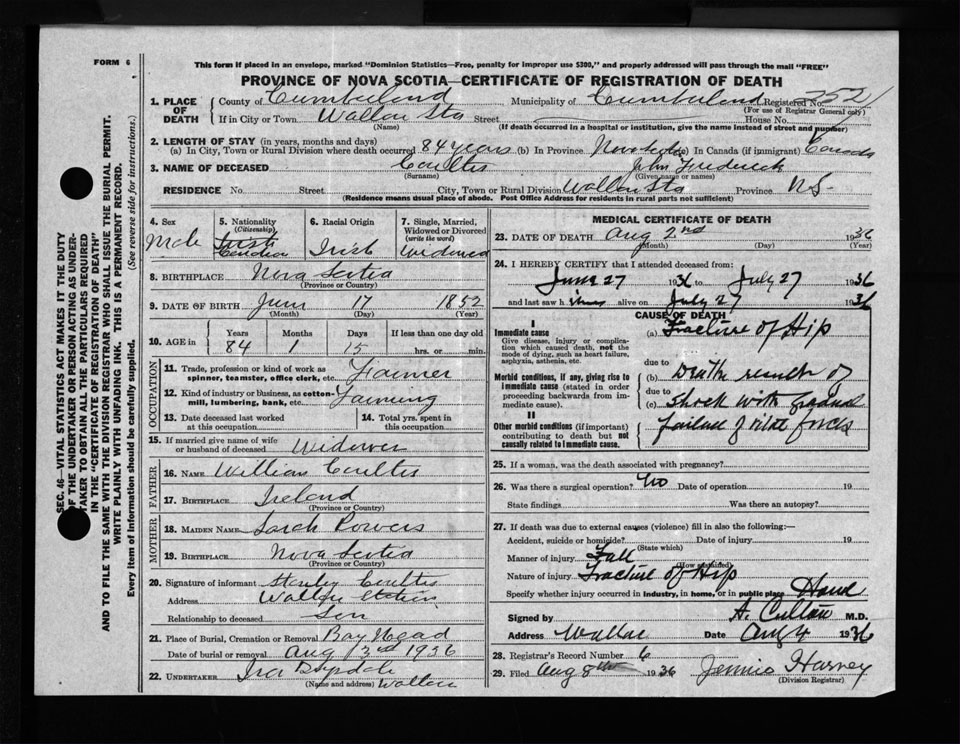 FORM 6
This form if placed in an envelope, marked "Dominion Statistics—Free, penalty for improper use $300," and properly addressed will pass through the mail "FREE"
PROVINCE OF NOVA SCOTIA—CERTIFICATE OF REGISTRATION OF DEATH
1. PLACE OF DEATH { County of Cumberland Municipality of Cumberland Registered No. 252
(For use of Registrar General only)
If in City or Town Street House No.
(Name) (If death occurred in a hospital or institution, give the name instead of street and number)
2. LENGTH OF STAY (in years, months and days)
(a) In City, Town or Rural Division where death occurred 84 years (b) In Province (c) In Canada (if immigrant) Canada
3. NAME OF DECEASED Coulter John Frederick
(Surname) (Given name or names)
RESIDENCE No. Street City, Town or Rural Division Province N.S.
(Residence means usual place of abode. Post Office Address for residents in rural parts not sufficient)
4. Sex Male
5. Nationality (Citizenship) Canadian
6. Racial Origin Irish
7. Single, Married, Widowed or Divorced (write the word) Widowed
8. BIRTHPLACE Nova Scotia
(Province or Country)
9. DATE OF BIRTH June 17 1852
(Month) (Day) (Year)
10. AGE in Years Months Days If less than one day old
84 1 15 hrs. or min.
OCCUPATION
11. Trade, profession or kind of work as spinner, teamster, office clerk, etc. Farmer
12. Kind of industry or business, as cotton-mill, lumbering, bank, etc. Farming
13. Date deceased last worked at this occupation
14. Total yrs. spent in this occupation
15. If married give name of wife or husband of deceased Widower
FATHER
16. NAME William Coulter
17. BIRTHPLACE Ireland
(Province or Country)
MOTHER
18. MAIDEN NAME Sarah Powers
19. BIRTHPLACE Nova Scotia
(Province or Country)
20. Signature of informant Stanley Coulter
Address
Relationship to deceased Son
21. Place of Burial, Cremation or Removal Bay Head
Date of burial or removal Aug 3rd 1936
22. UNDERTAKER Ira
(Name and address)
MEDICAL CERTIFICATE OF DEATH
23. DATE OF DEATH Aug 2nd 1936
(Month) (Day) (Year)
24. I HEREBY CERTIFY that I attended deceased from:
June 27 1936 to July 27 1936
and last saw h alive on July 27 1936
CAUSE OF DEATH
I
Immediate cause
Give disease, injury or complication which caused death, not the mode of dying, such as heart failure, asphyxia, asthenia, etc.
(a) Fracture of Hip
due to
Morbid conditions, if any, giving rise to immediate cause (stated in order proceeding backwards from immediate cause).
(b) Death result of
due to
(c) shock with gradual
II
Other morbid conditions (if important) contributing to death but not causally related to immediate cause.
failure of vital forces
25. If a woman, was the death associated with pregnancy?
26. Was there a surgical operation? No Date of operation 19
State findings Was there an autopsy?
27. If death was due to external causes (violence) fill in also the following:—
Accident, suicide or homicide? Date of injury 19
(State which)
Manner of injury Fall
(How sustained)
Nature of injury Fracture of Hip
Specify whether injury occurred in industry, in home, or in public place Home
Signed by M.D.
Address Wallace Date Aug 4 1936
28. Registrar's Record Number 6
29. Filed Aug 8th 1936 Harvey
(Division Registrar)
SEC. 46—VITAL STATISTICS ACT MAKES IT THE DUTY
OF THE UNDERTAKER OR PERSON ACTING AS UNDER-
TAKER TO OBTAIN ALL THE PARTICULARS REQUIRED
IN THE "CERTIFICATE OF REGISTRATION OF DEATH"
AND TO FILE THE SAME WITH THE DIVISION REGISTRAR WHO SHALL ISSUE THE BURIAL PERMIT.
WRITE PLAINLY WITH UNFADING INK. THIS IS A PERMANENT RECORD.
Every item of Information should be carefully supplied. (See reverse side for instructions.)